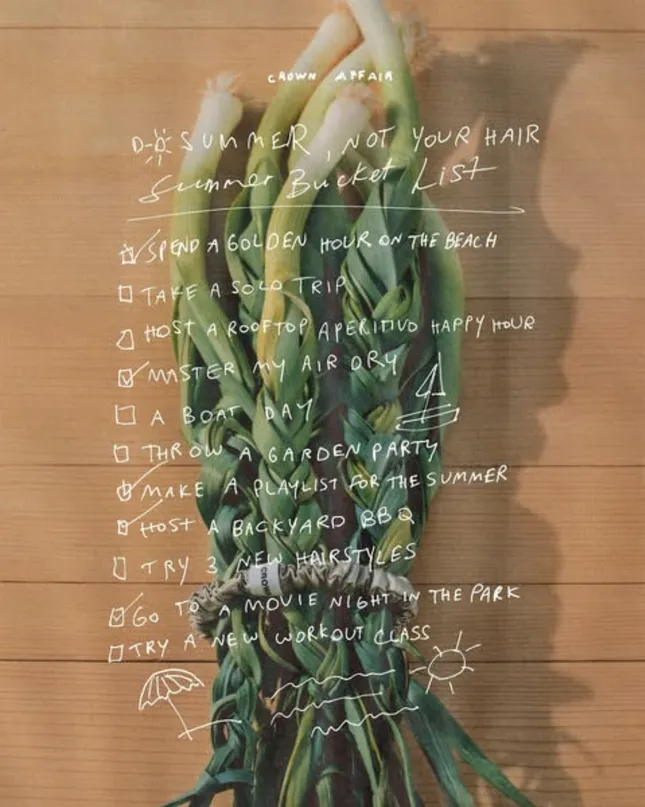 CROWN AFFAIR
D-O SUMMER, NOT YOUR HAIR
Summer Bucket List
SPEND A GOLDEN HOUR ON THE BEACH
TAKE A SOLO TRIP
HOST A ROOFTOP APERITIVO HAPPY HOUR
MASTER MY AIR DRY
A BOAT DAY
THROW A GARDEN PARTY
MAKE A PLAYLIST FOR THE SUMMER
HOST A BACKYARD BBQ
TRY 3 NEW HAIRSTYLES
CROW
GO TO A MOVIE NIGHT IN THE PARK
TRY A NEW WORKOUT CLASS